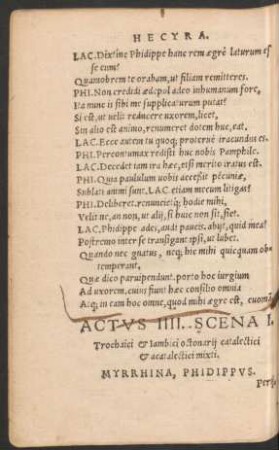 HECYRA.
LAC. Dixin' Phidippe hanc rem ægrè laturum es
se eum?
Quamobrem te orabam, ut filiam remitteres.
PHI. Non credidi ædepol adeo inhumanum fore,
Ita nunc is sibi me supplicaturum putat?
Si est, ut velit reducere uxorem, licet,
Sin alio est animo, renumeret dotem huc, eat.
LAC. Ecce autem tu quoq; proterue iracundus es.
PHI. Percontumax redisti huc nobis Pamphile.
LAC. Decedet iam ira hæc, etsi merito iratus est.
PHI. Quia paululum uobis accessit pecuniæ,
Sublati animi sunt. LAC. etiam mecum litigas?
PHI. Deliberet, renuncietq; hodie mihi,
Velit ne, an non, ut alij, si huic non sit, siet.
LAC. Phidippe ades, audi paucis. abijt, quid mea?
Postremo inter se transigant ipsi, ut lubet.
Quando nec gnatus, neq; hic mihi quicquam ob
temperant,
Quæ dico paruipendunt. porto hoc iurgium
Ad uxorem, cuius fiunt hæc consilio omnia
Atq; in eam hoc omne, quod mihi ægre est, euomã.
ACTVS IIII. SCENA I.
Trochaici & Iambici octonarij catalectici
& acatalectici mixti.
MYRRHINA, PHIDIPPVS.